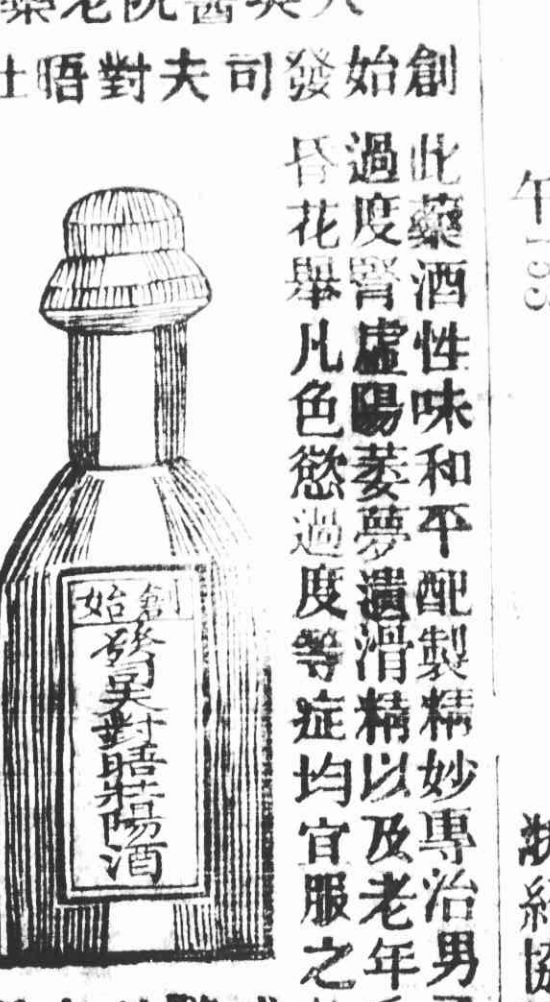 創始發司夫對晤壯
此藥酒性味和平配製精妙專治男
過度腎虛陽萎夢遺滑精以及老年
昏花舉凡色慾過度等症均宜服之
創始
發司夫對晤壯陽酒
午